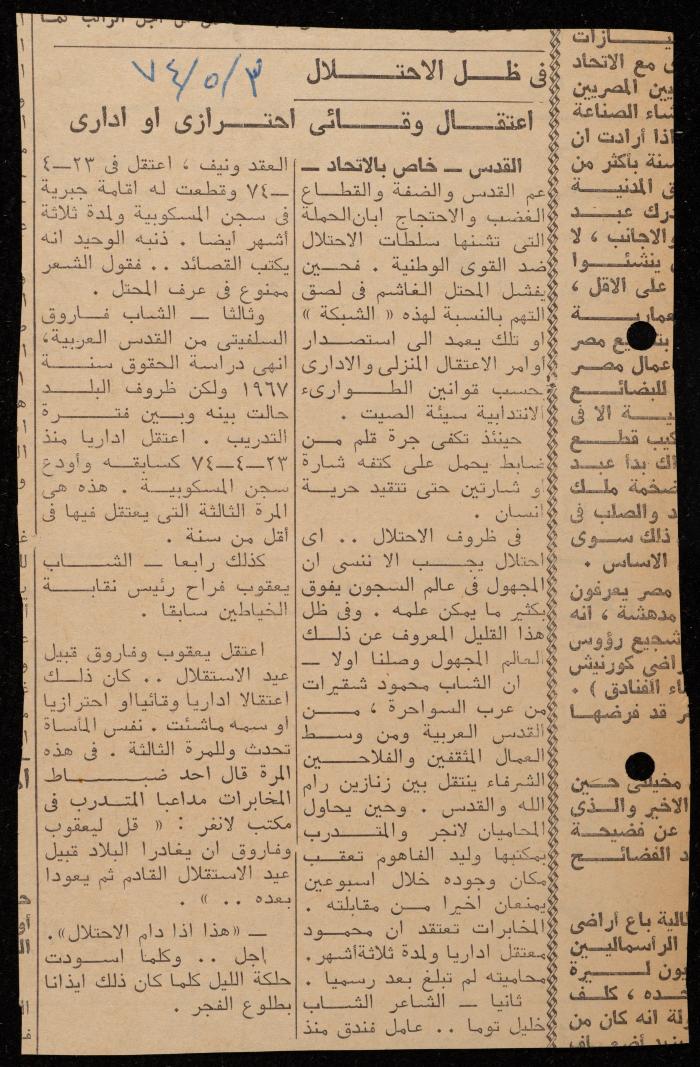 فى ظل الاحتلال
٧٤/٥/٣
اعتقال وقائى احترازى او ادارى
القدس ــ خاص بالاتحاد ــ
عم القدس والضفة والقطاع
الغضب والاحتجاج ابان الحملة
التى تشنها سلطات الاحتلال
ضد القوى الوطنية . فحين
يفشل المحتل الغاشم فى لصق
التهم بالنسبة لهذه « الشبكة »
او تلك يعمد الى استصدار
أوامر الاعتقال المنزلى والادارى
حسب قوانين الطوارىء
الانتدابية سيئة الصيت .
حينئذ تكفى جرة قلم من
ضابط يحمل على كتفه شارة
او شارتين حتى تتقيد حرية
انسان .
فى ظروف الاحتلال .. اى
احتلال يجب الا ننسى ان
المجهول فى عالم السجون يفوق
بكثير ما يمكن علمه . وفى ظل
هذا القليل المعروف عن ذلك
العالم المجهول وصلنا اولا ــ
ان الشاب محمود شقيرات
من عرب السواحرة ، من
القدس العربية ومن وسط
العمال المثقفين والفلاحين
الشرفاء ينتقل بين زنازين رام
الله والقدس . وحين يحاول
المحاميان لانجر والمتدرب
بمكتبها وليد الفاهوم تعقب
مكان وجوده خلال اسبوعين
يمنعان اخيرا من مقابلته .
المخابرات تعتقد ان محمود
معتقل اداريا ولمدة ثلاثة أشهر .
محاميته لم تبلغ بعد رسميا .
ثانيا ــ الشاعر الشاب
خليل توما .. عامل فندق منذ
العقد ونيف ، اعتقل فى ٢٣ــ٤
ــ٧٤ وقطعت له اقامة جبرية
فى سجن المسكوبية ولمدة ثلاثة
أشهر أيضا . ذنبه الوحيد انه
يكتب القصائد .. فقول الشعر
ممنوع فى عرف المحتل .
وثالثا ــ الشاب فاروق
السلفيتى من القدس العربية،
انهى دراسة الحقوق سنة
١٩٦٧ ولكن ظروف البلد
حالت بينه وبين فترة
التدريب . اعتقل اداريا منذ
٢٣ــ٤ــ٧٤ كسابقه وأودع
سجن المسكوبية . هذه هى
المرة الثالثة التى يعتقل فيها فى
أقل من سنة .
كذلك رابعا ــ الشاب
يعقوب فراح رئيس نقابة
الخياطين سابقا .
اعتقل يعقوب وفاروق قبيل
عيد الاستقلال .. كان ذلك
اعتقالا اداريا وقائيا او احترازيا
او سمه ما شئت . نفس المأساة
تحدث وللمرة الثالثة . فى هذه
المرة قال احد ضباط
المخابرات مداعبا المتدرب فى
مكتب لانغر : « قل ليعقوب
وفاروق ان يغادرا البلاد قبيل
عيد الاستقلال القادم ثم يعودا
بعده .. » .
ــ «هذا اذا دام الاحتلال».
اجل .. وكلما اسودت
حلكة الليل كلما كان ذلك ايذانا
بطلوع الفجر .
مع الاتحاد
المصريين
الصناعة
اذا أرادت ان
بأكثر من
المدنية
عبد
والاجانب ، لا
ينشئوا
على الاقل ،
مصر
عمال مصر
للبضائع
الا فى
قطع
بدأ عبد
ضخمة ملك
والصلب فى
ذلك سوى
الاساس .
مصر يعرفون
مدهشة ، انه
رؤوس
كورنيش
الفنادق ) .
قد فرضها
حين
الاخير والذى
عن فضيحة
الفضائح
باع أراضى
الرأسماليين
ليرة
كلف
انه كان من